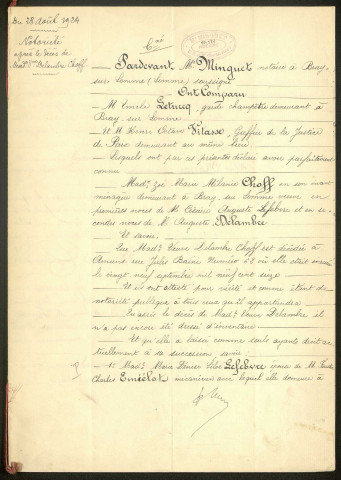 Du 28 août 1934
Notoriété
après le décès de
Mad. Vve Delambre Choff
Pardevant Me Minguet notaire à Bray-
sur-Somme (Somme) soussigné
Ont Comparu
M. Emile Letucq, garde champêtre demeurant à
Bray-sur-Somme
Et M. Octave Vilasse, Greffier de la Justice
de Paix demeurant au même lieu
Lesquels ont par ces présentes déclaré avoir parfaitement
connu
Made Zoé Marie Mélanie Choff en son vivant
ménagère demeurant à Bray-sur-Somme veuve en
premières noces de M. Césaire Auguste Lefebvre et en se-
condes noces de M. Auguste Delambre
Et savoir
Que Made Veuve Delambre Choff est décédée à
Amiens rue Jules Barni numéro où elle était
le vingt neuf septembre mil neuf cent seize
Et ils ont attesté pour vérité et comme étant de
notoriété publique à tous ceux qu'il appartiendra
Qu'après le décès de Made Veuve Delambre il
n'a pas encore été dressé d'inventaire
Et qu'elle a laissé comme seuls ayants droit ac-
tuellement à sa succession savoir :
1° Made Marie Lefebvre épouse de M.
Charles Emiélot, mécanicien avec lequel elle demeure à